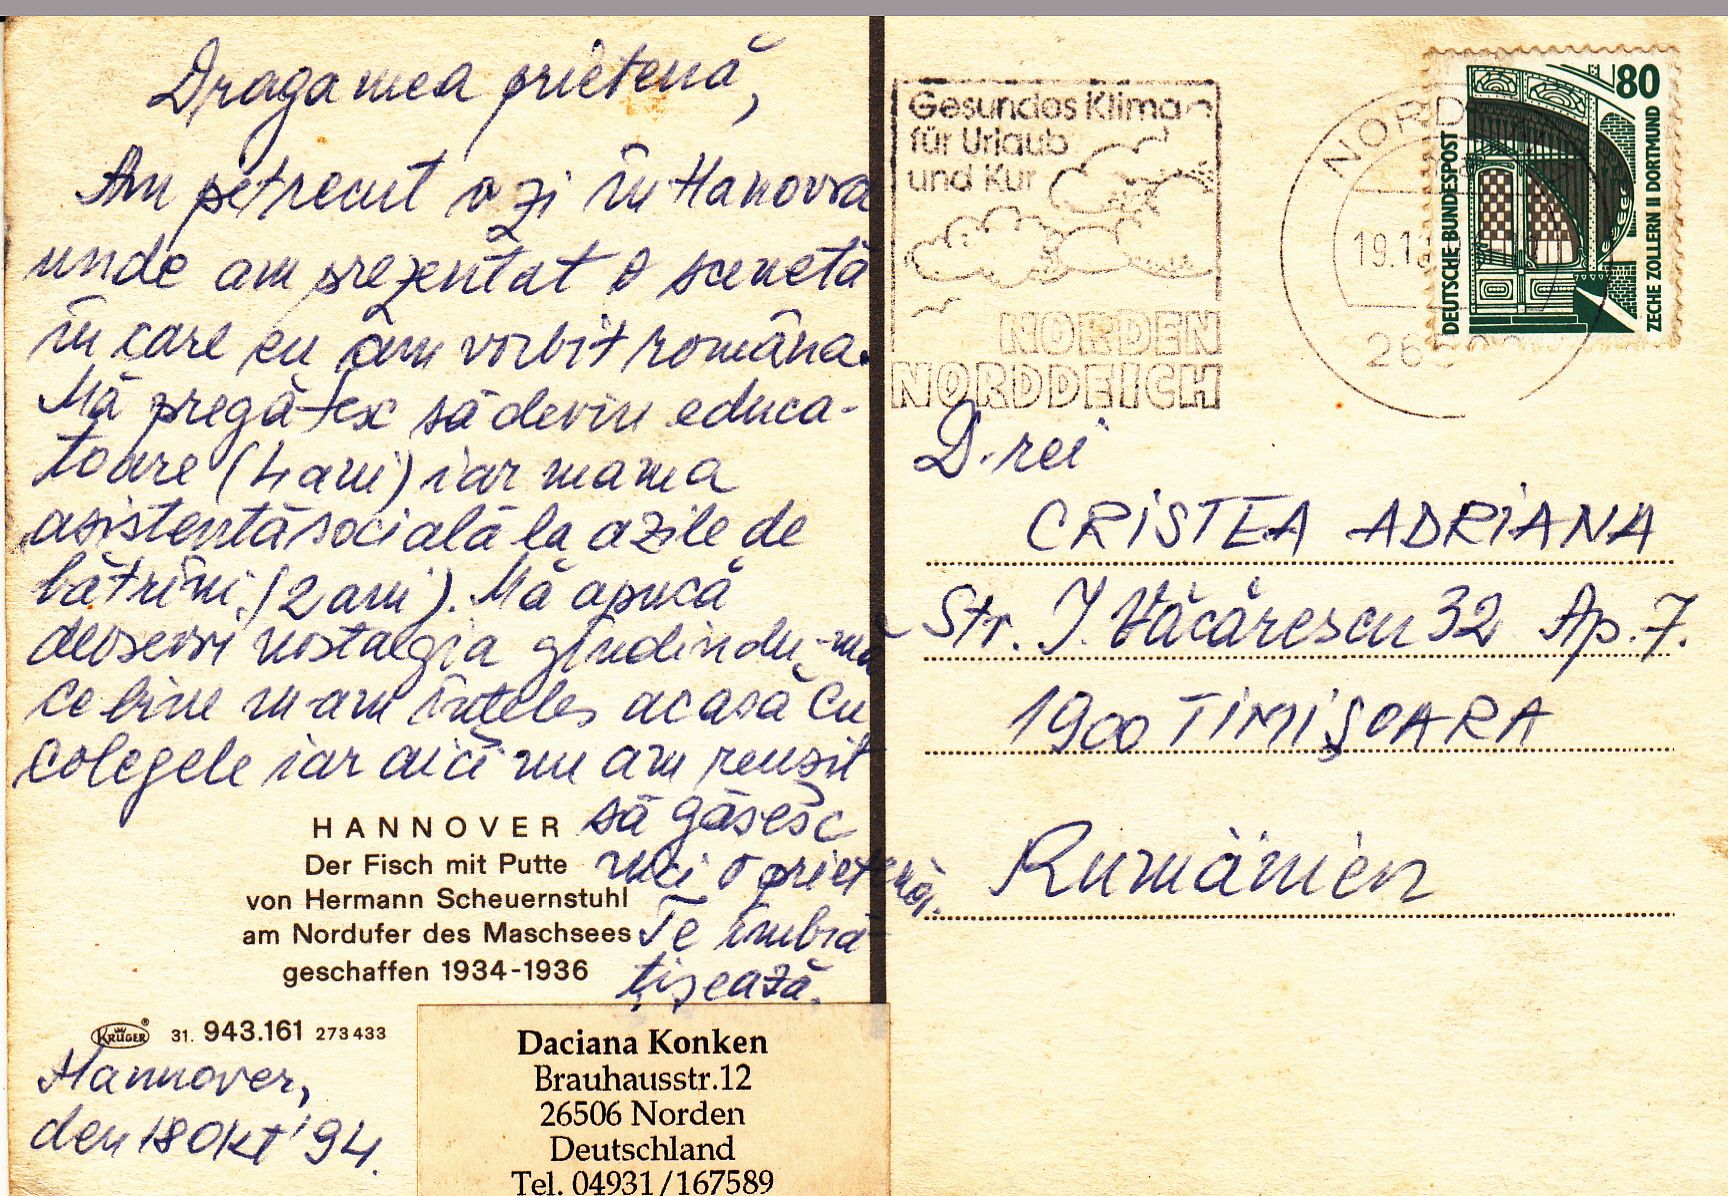 Draga mea prietenă,
Am petrecut o zi în Hanovra
unde am prezentat o scenetă
în care eu am vorbit româna.
Mă pregătesc să devin educa-
toare (4 ani) iar mama
asistentă socială la azile de
bătrîni (2 ani). Mă apucă
deseori nostalgia gîndindu-mă
ce bine m-am înțeles acasă cu
colegele iar aici nu am reușit
să găsesc
nici o prietenă.
Te îmbră-
țișează.
HANNOVER
Der Fisch mit Putte
von Hermann Scheuernstuhl
am Nordufer des Maschsees
geschaffen 1934-1936
KRÜGER ® 31. 943.161 273 433
Hannover,
den 18 Okt '94.
Daciana Konken
Brauhausstr.12
26506 Norden
Deutschland
Tel. 04931/167589
Gesundes Klima
für Urlaub
und Kur
NORDEN
NORDDEICH
NORD
19.1
26
80
DEUTSCHE BUNDESPOST
ZECHE ZOLLERN II DORTMUND
D-rei
CRISTEA ADRIANA
Str. I. Văcărescu 32 Ap. 7.
1900 TIMIȘOARA
Rumänien